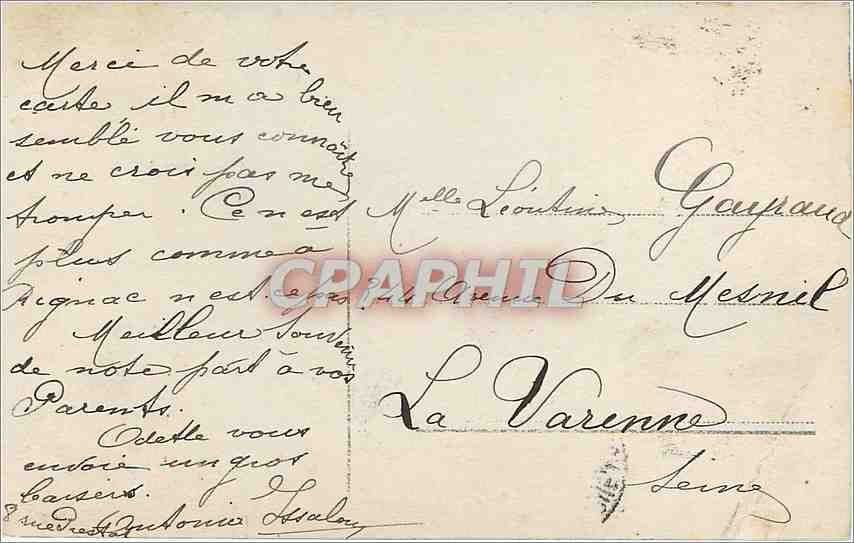 Merci de votre
carte il m a bien
semblé vous connaître
et ne crois pas me
tromper. Ce n est
plus comme à
Rignac n est-ce pas
Meilleur Souvenir
de note part à vos
Parents.
Odette vous
envoie un gros
baisers.
Antonin Issaly
8 rue
Melle Léontine Gayraud
Avenue Du Mesnil
La Varenne
Seine
CPRAPHIL